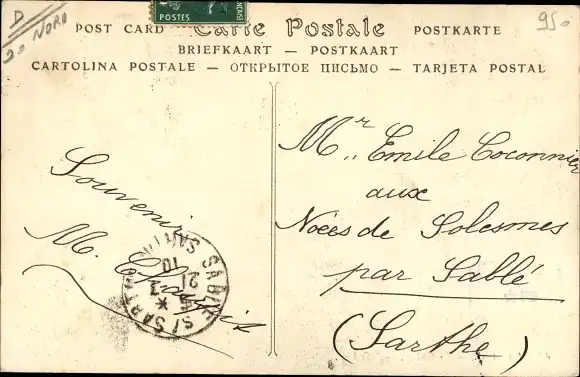 D
30 NORD
POSTES
POST CARD — Carte Postale POSTKARTE
BRIEFKAART — POSTKAART
CARTOLINA POSTALE — ОТКРЫТОЕ ПИСЬМО — TARJETA POSTAL
95,-
Souvenir
M.
SABLE S/ SARTHE
21
10
Mr Emile Coconnier
aux
Noces de Solesmes
par Sablé
(Sarthe)